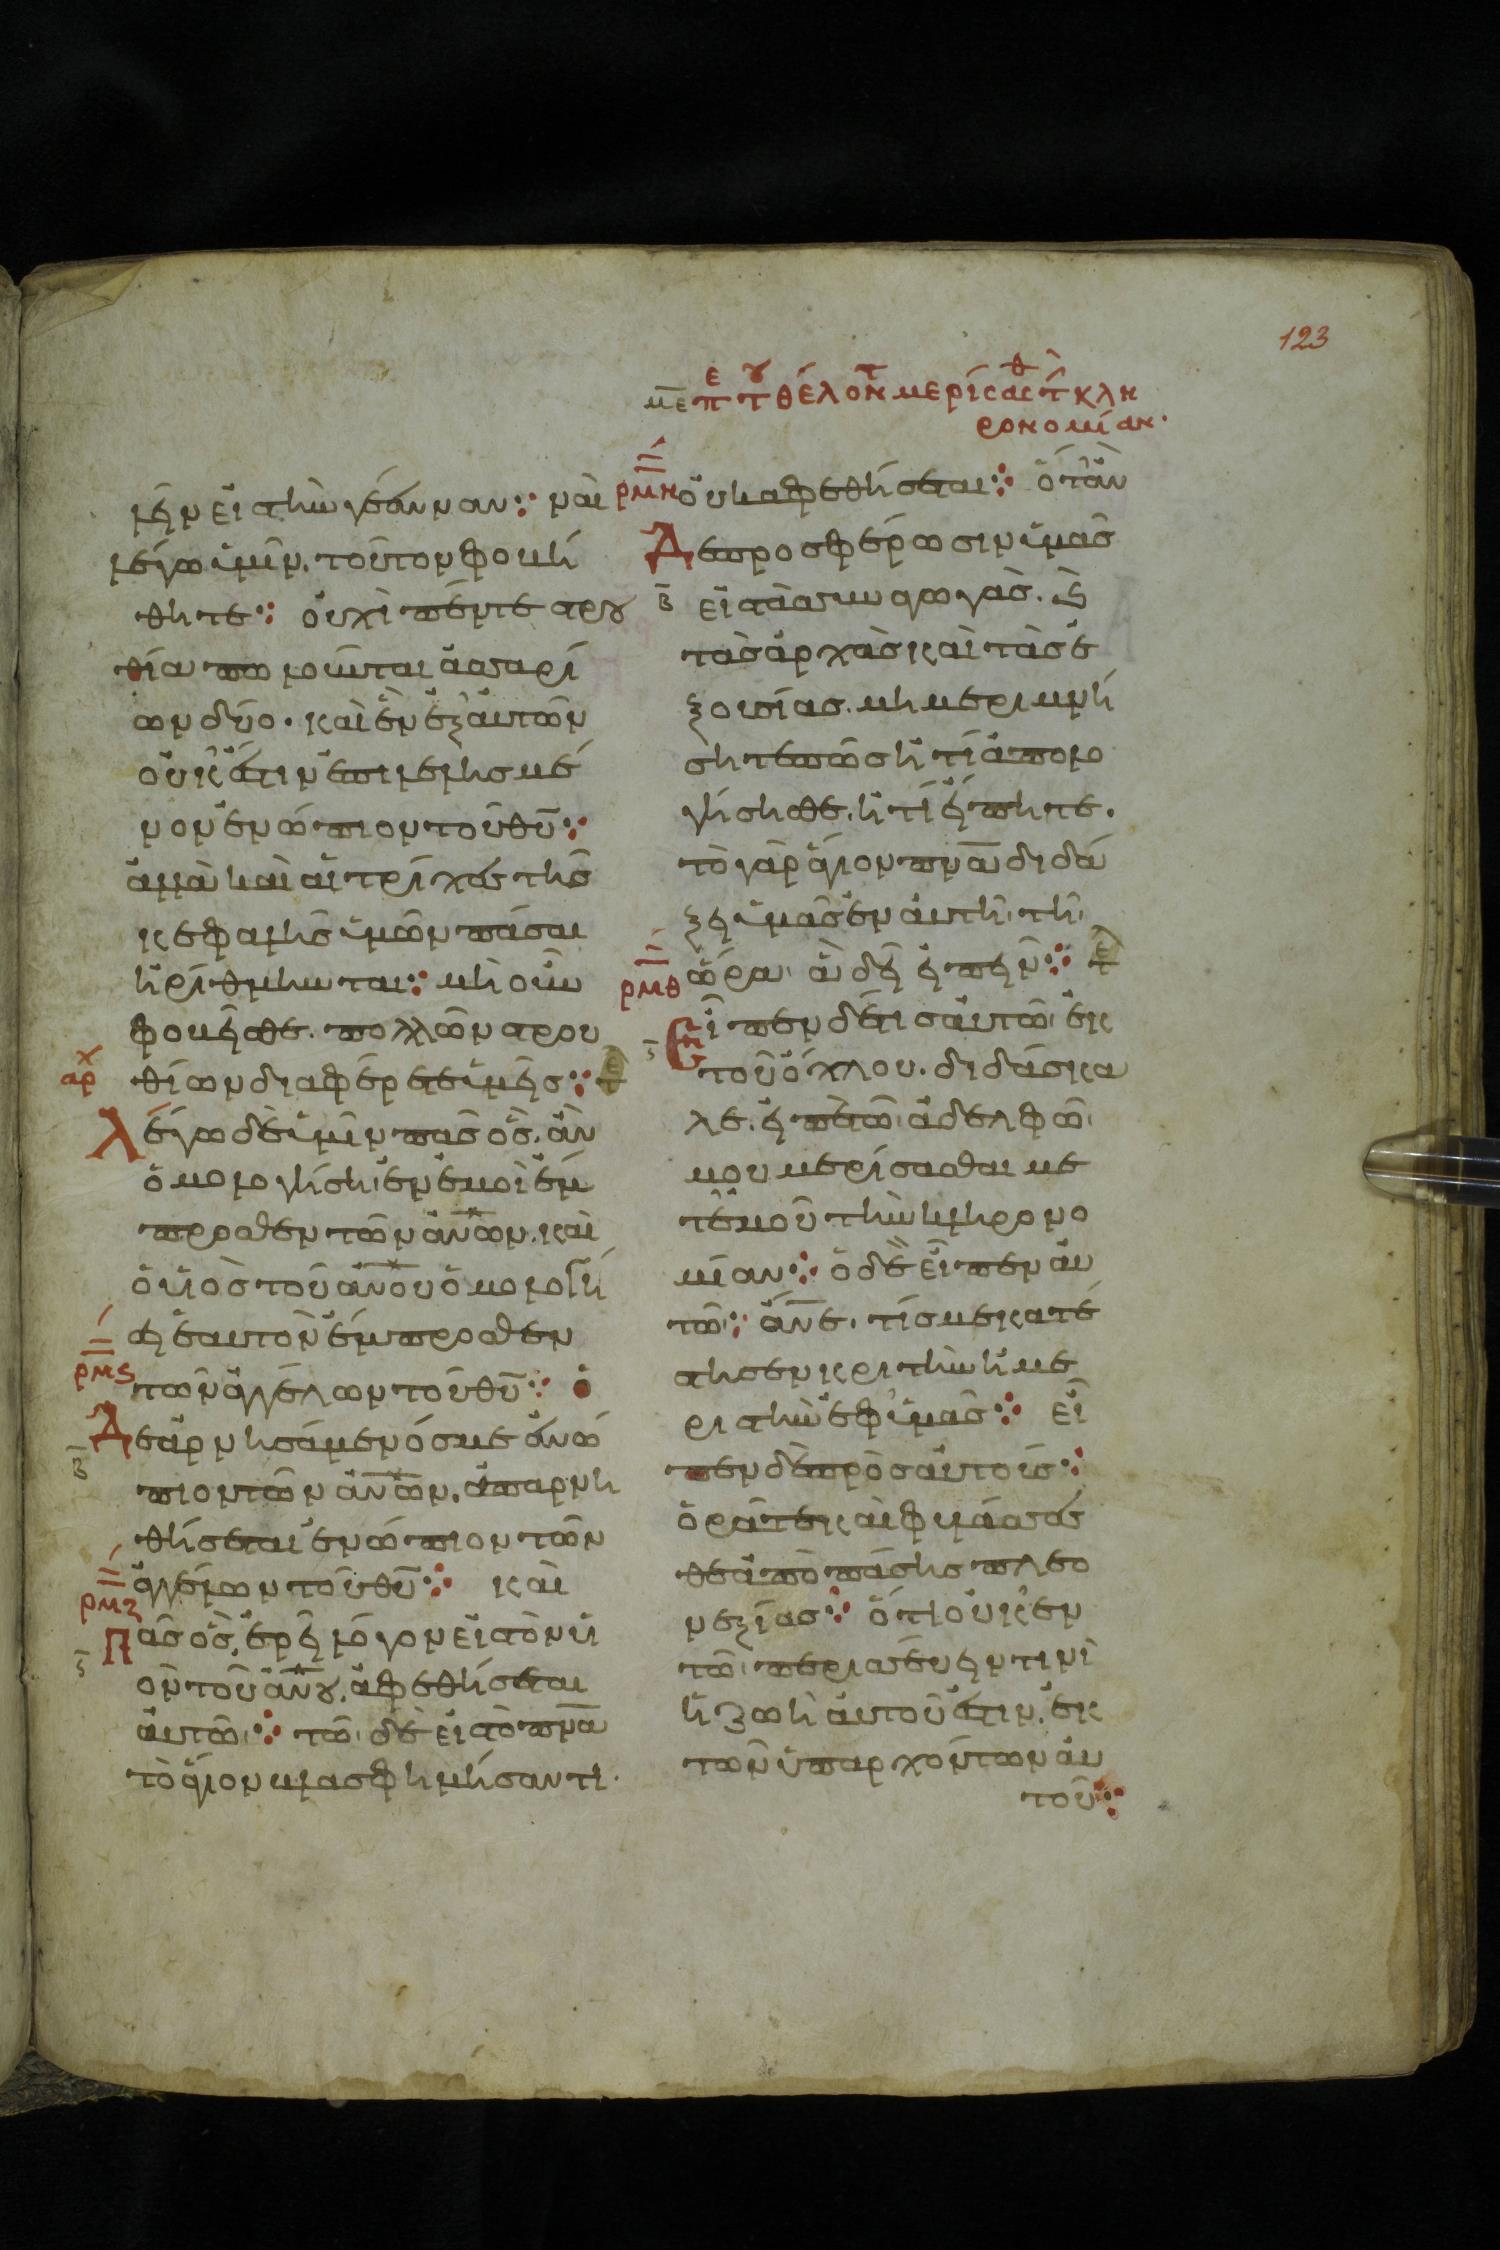 123
με πε του θέλοντ μερίσασθ τ κλη
ρονομίαν·
λεῖν εἰς τὴν γέενναν⁘ ναὶ
λέγω ὑμῖν. τοῦτον φοβή
θητε⁘ οὐχὶ πέντε στρου
θία πωλοῦνται ἀσσαρί
ων δύο· καὶ ἓν ἐξ αὐτῶν
οὐκ ἔστιν ἐπιλελησμέ
νον ἐνώπιον τοῦ θ̅υ̅⁘
ἀλλὰ καὶ αἱ τρίχες τῆς
κεφαλῆς ὑμῶν πᾶσαι
ἠρίθμηνται⁘ μὴ οὖν
φοβεῖσθε. πολλῶν στρου
αρχ θίων διαφέρετε ὑμεῖς⁘ τε
Λέγω δὲ ὑμῖν πᾶς ὃς. ἂν
ὁμολογήσῃ ἐν ἐμοὶ ἔμ
προσθεν τῶν ἀ̅ν̅ω̅ν. καὶ
ὁ υἱὸς τοῦ ἀ̅ν̅ο̅υ ὁμολογή
σει ἑαυτὸν ἔμπροσθεν
ρμς τῶν ἀγγέλων τοῦ θ̅υ̅⁘ ὁ
β Δὲ ἀρνησάμενός με ἐνώ
πιον τῶν ἀ̅ν̅ω̅ν. ἀπαρνη
θήσεται ἐνώπιον τῶν
ρμζ ἀγγέλων τοῦ θ̅υ̅⁘ καὶ
ς Πᾶς ὃς. ἐρεῖ λόγον εἰς τὸν υἱ
ὸν τοῦ ἀ̅ν̅ου. ἀφεθήσεται
αὐτῶ⁘ τῶ δὲ εἰς τὸ π̅ν̅α̅
τὸ ἅγιον βλασφημήσαντι·
ρμη οὐκ ἀφεθήσεται⁘ ὅταν
Δὲ προσφέρωσιν ὑμᾶς
β εἰς τὰς συναγωγὰς. καὶ
τὰς ἀρχὰς καὶ τὰς ἐ
ξουσίας. μὴ μεριμνή
σητε πῶς ἢ τί ἀπολο
γήσησθε. ἢ τί εἴπητε.
τὸ γὰρ ἅγιον π̅ν̅α̅ διδά
ξει ὑμᾶς ἐν αὐτῆ τῆ
ρμθ ὥρα ἃ δεῖ εἰπεῖν⁘ τε
ς Εἶπεν δέ τις αὐτῶ ἐκ
τοῦ ὄχλου. διδάσκα
λε. εἰπὲ τῶ ἀδελφῶ
μου μερίσασθαι με
τ᾽ ἐμοῦ τὴν κληρονο
μίαν⁘ ὁ δὲ εἶπεν αὐ
τῶ⁘ ἄ̅ν̅ε. τίς με κατέ
στησεν κριτὴν ἢ με
ριστὴν ἐφ᾽ ὑμᾶς⁘ εἶ
πεν δὲ πρὸς αὐτούς⁘
ὁρᾶτε καὶ φυλάσσεσ
θε ἀπὸ πάσης πλεο
νεξίας⁘ ὅτι οὐκ ἐν
τῶ περισσεύειν τινὶ
ἡ ζωὴ αὐτοῦ ἔστιν. ἐκ
τῶν ὑπαρχόντων αὐ
τοῦ⁘